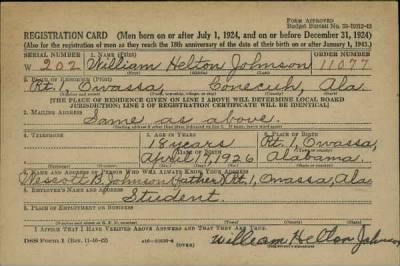 FORM APPROVED
REGISTRATION CARD (Men born on or after July 1, 1924, and on or before December 31, 1924)
(Also for the registration of men as they reach the 18th anniversary of the date of their birth on or after January 1, 1943.)
SERIAL NUMBER 1. NAME (Print) ORDER NUMBER
W 202 William Helton Johnson 11077
2. PLACE OF RESIDENCE (Print)
Rt. 1, Owassa, Conecuh, Ala.
[THE PLACE OF RESIDENCE GIVEN ON LINE 2 ABOVE WILL DETERMINE LOCAL BOARD
JURISDICTION; LINE 2 OF REGISTRATION CERTIFICATE WILL BE IDENTICAL]
3. MAILING ADDRESS
Same as above.
4. TELEPHONE 5. AGE IN YEARS 6. PLACE OF BIRTH
18 years Rt. 1, Owassa,
DATE OF BIRTH
April 17, 1926 Alabama.
7. NAME AND ADDRESS OF PERSON WHO WILL ALWAYS KNOW YOUR ADDRESS
B. Johnson (father) Rt. 1, Owassa, Ala
8. EMPLOYER'S NAME AND ADDRESS
Student.
9. PLACE OF EMPLOYMENT OR BUSINESS
I AFFIRM THAT I HAVE VERIFIED ABOVE ANSWERS AND THAT THEY ARE TRUE.
DSS Form 1 (OVER) William Helton Johnson